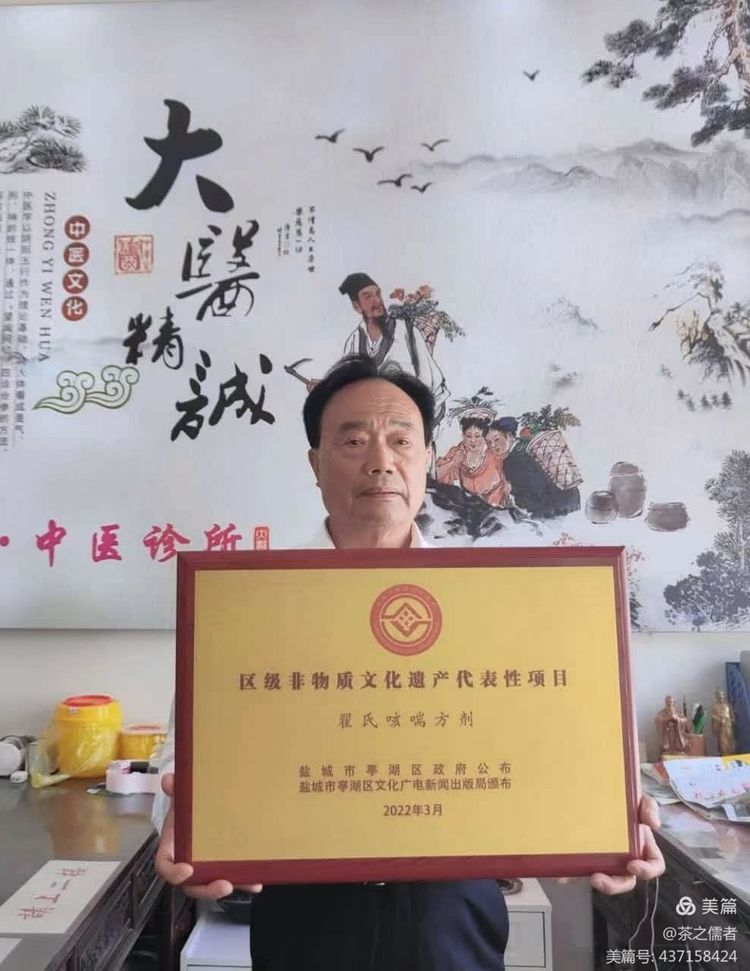 大
醫
精
誠
中医文化
ZHONG YI WEN HUA
·中医诊所
区级非物质文化遗产代表性项目
翟氏咳喘方剂
盐城市亭湖区政府公布
盐城市亭湖区文化广电新闻出版局颁布
2022年3月
美篇
@茶之儒者
美篇号: 437158424